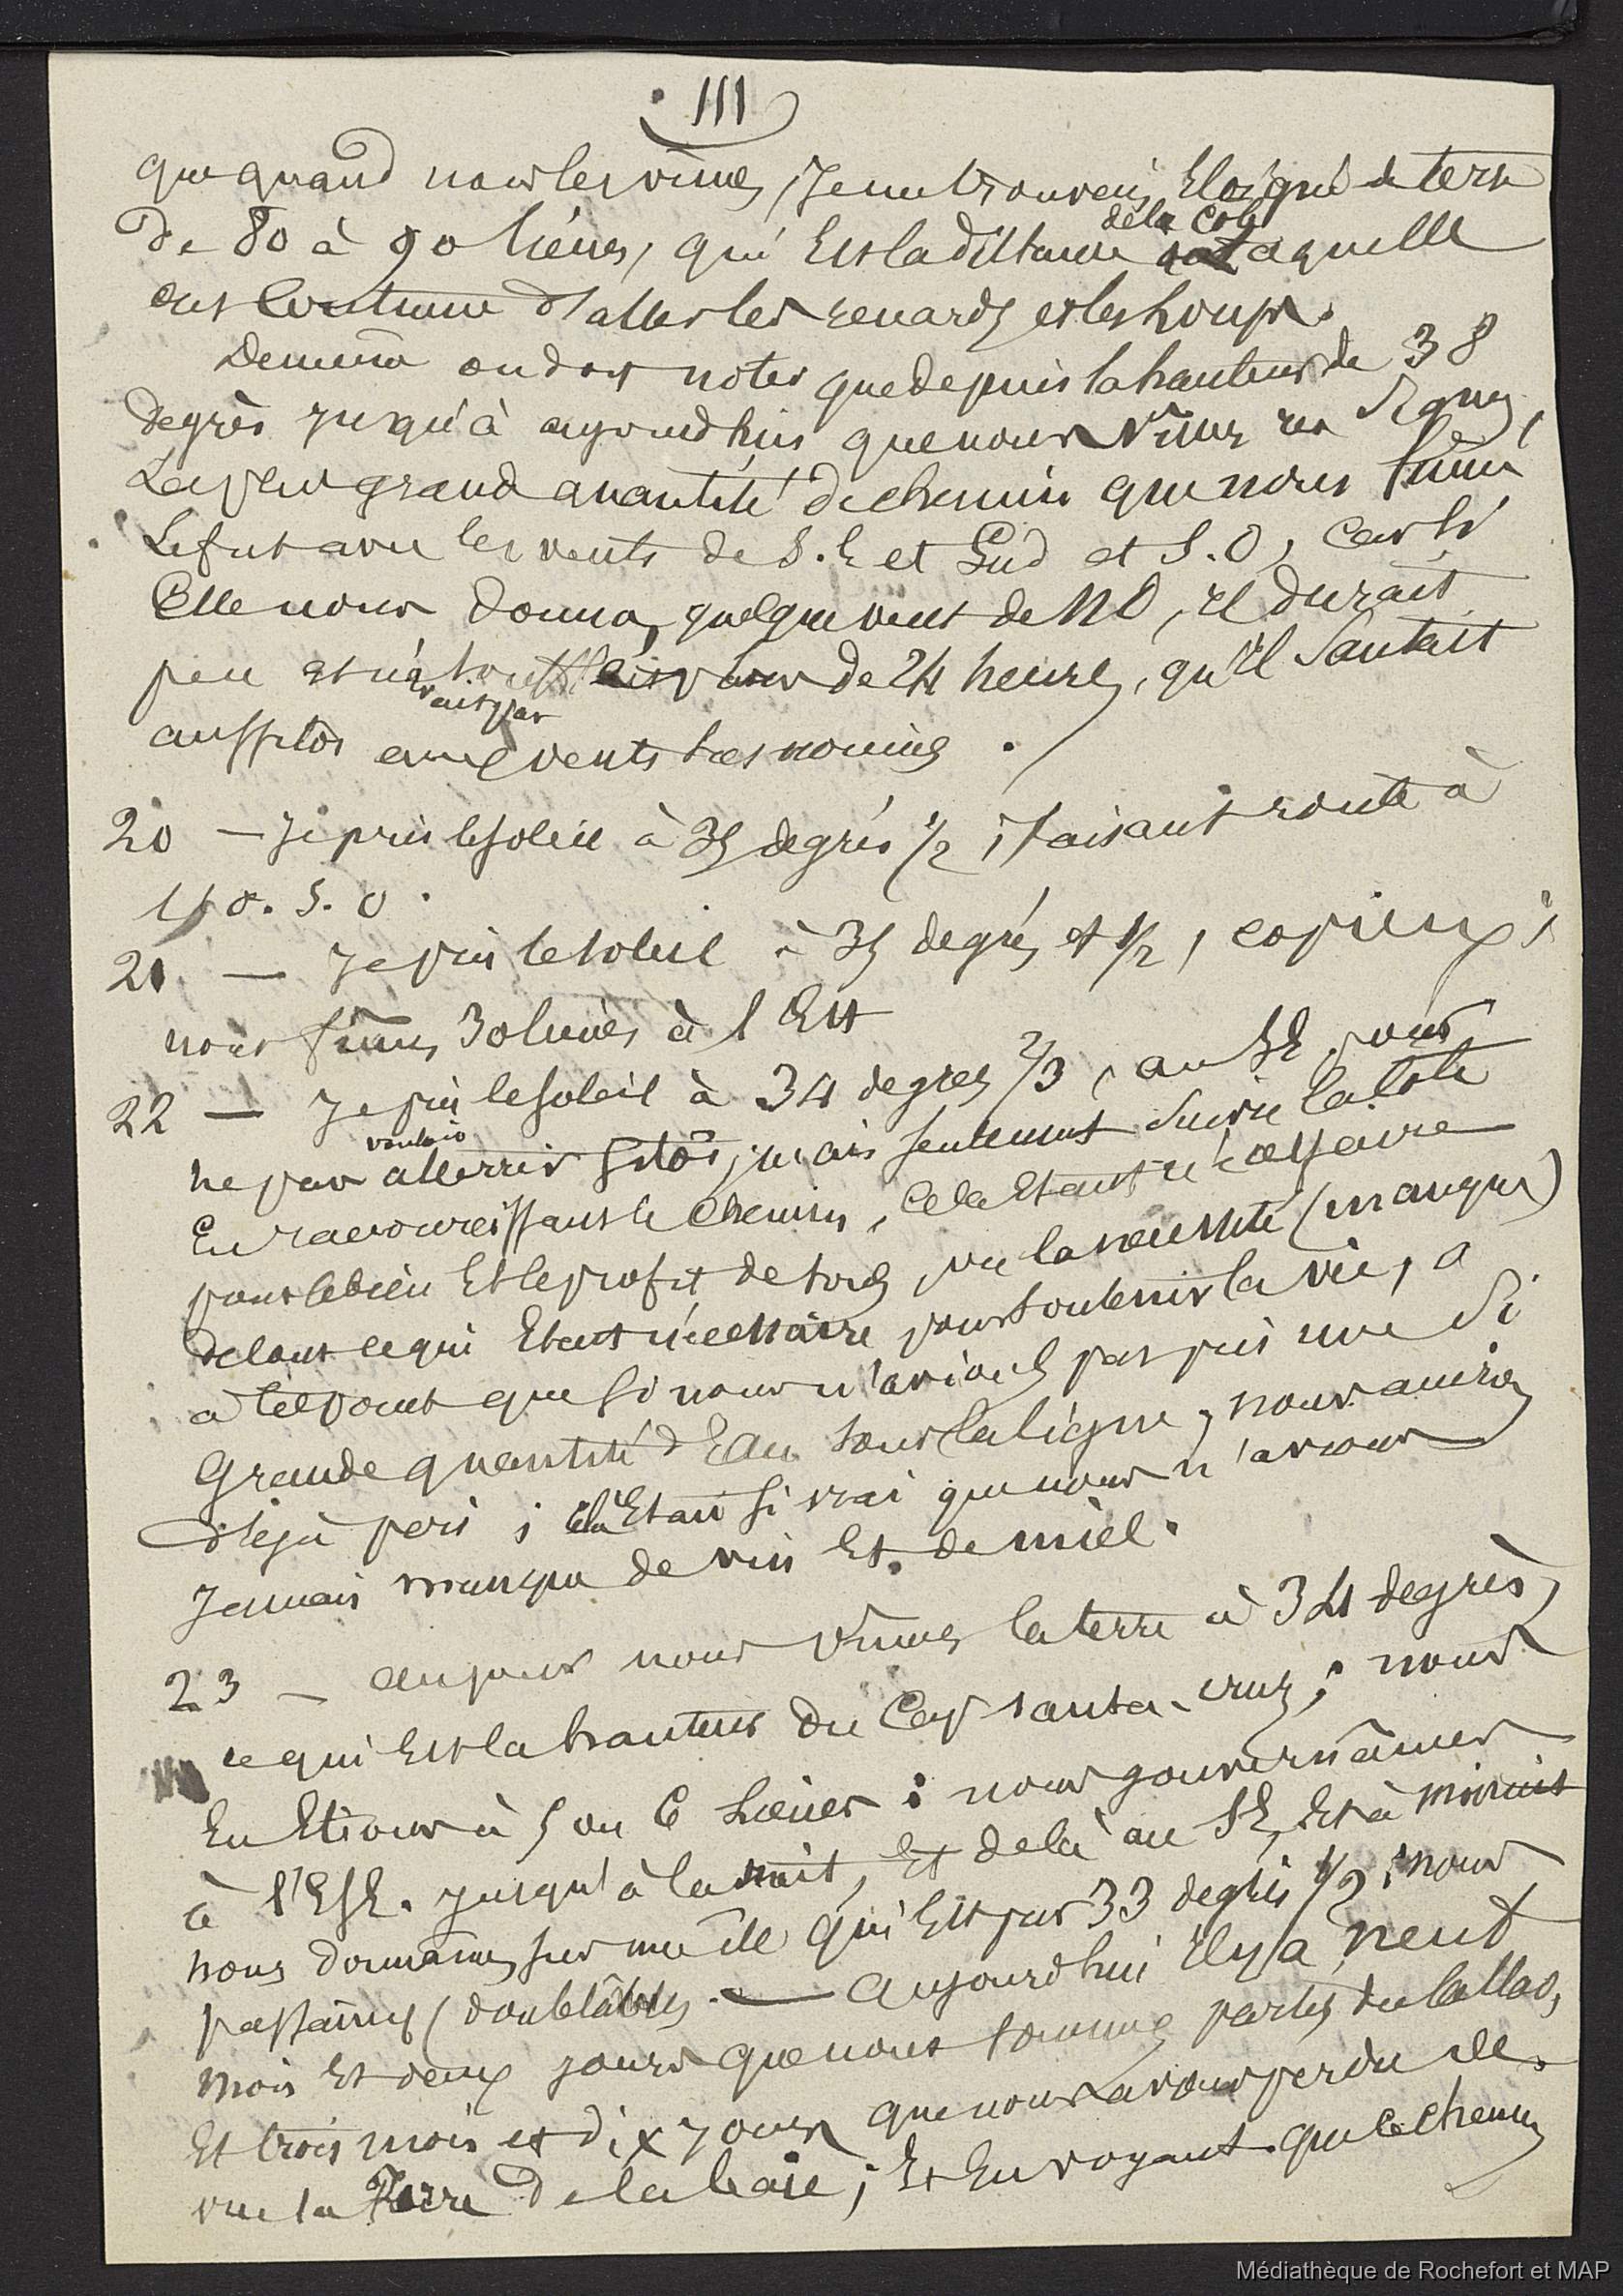 III
que quand nous les vîmes, Je me trouvais, Eloigné de terre
de la Côte
de 80 à 90 lieues, qui Est la distance laquelle
ont Coutume d'aller les renards et les loups.
De même on doit noter que depuis la hauteur de 38
degrès jusqu'à aujourd'hui que nous vîmes ces signes,
La plus grand quantité de chemin que nous fîmes
Le fut avec les vents de S.E et Sud et S.O, Car si
Elle nous donna, quelque vent de NO, il durait
peu et n'a pas de 24 heures, qu'il sautait
vait pas
aussitôt aux vents susnommés.
20 — Je pris le soleil à 35 degrés 1/2, faisant route à
l'O.S.O.
21 — Je pris le soleil à 35 degrés et 1/2, copieux;
nous fîmes 30 lieues à l'Est
22 — Je pris le soleil à 34 degrés 2/3, au SE, pour
vouloir
ne pas atterrir sitôt, mais seulement suivre la côte
En racourcissant le chemin, Cela Etant nécessaire
pour le bien Et le profit de tous, vu la nécessité (manque)
de tout ce qui Etait nécessaire pour soutenir la vie, a
a tel point que si nous n'avions pas pris une si
Grande quantité d'Eau sous la ligne, nous aurions
déjà péri; cela Etait si vrai que nous n'avions
Jamais manqué de vin Et de miel.
23 — au jour nous vîmes la terre à 34 degrès,
ce qui Est la hauteur du Cap santa-cruz; nous
En Etions à 5 ou 6 Lieues: nous gouvernâmes
à l'ESE. jusqu'à la nuit, Et delà au SE, Et à minuit
nous donnâmes sur une île qui Est par 33 degrés 1/2; nous
passâmes (doublâmes. — Aujourd'hui il y a neuf
mois Et deux jours que nous sommes partis du Callao,
Et trois mois et dix jours que nous avons perdu de
vue la Terre de la baie; Et En voyant que le chemin
Médiathèque de Rochefort et MAP